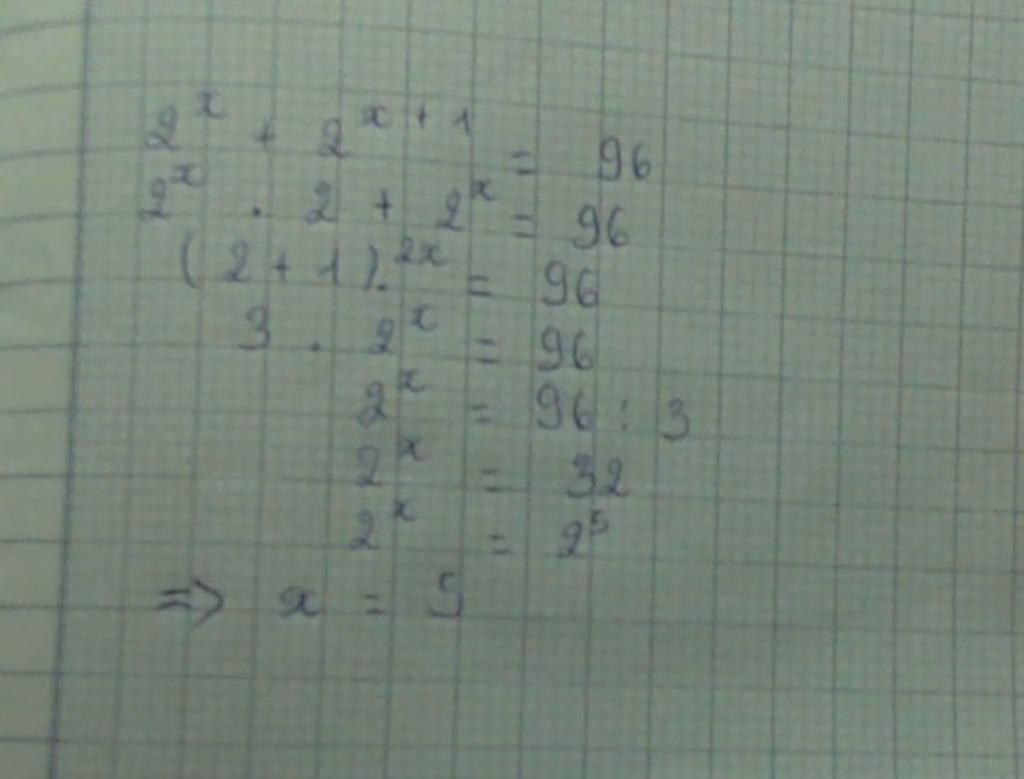 2^x + 2^{x+1} = 96
2^x . 2 + 2^x = 96
(2 + 1).2x = 96
3 . 2^x = 96
2^x = 96 : 3
2^x = 32
2^x = 2^5
=> x = 5